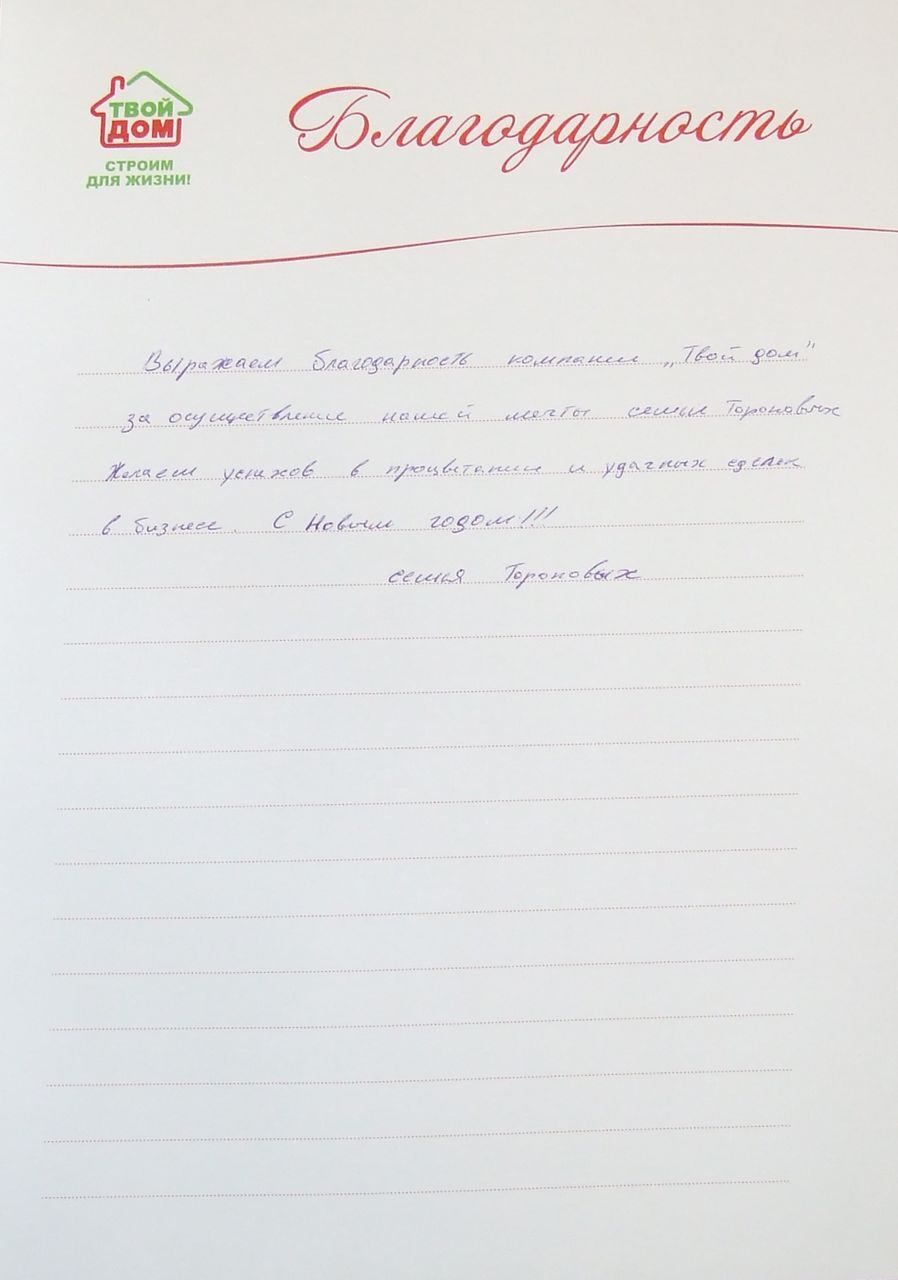 ТВОЙ
ДОМ
СТРОИМ
ДЛЯ ЖИЗНИ!
Благодарность
Выражаем благодарность компании „Твой дом"
за осуществление нашей мечты семьи Тороповых
Желаем успехов в процветании и удачных сделок
в бизнесе. С Новым годом!!!
семья Тороповых